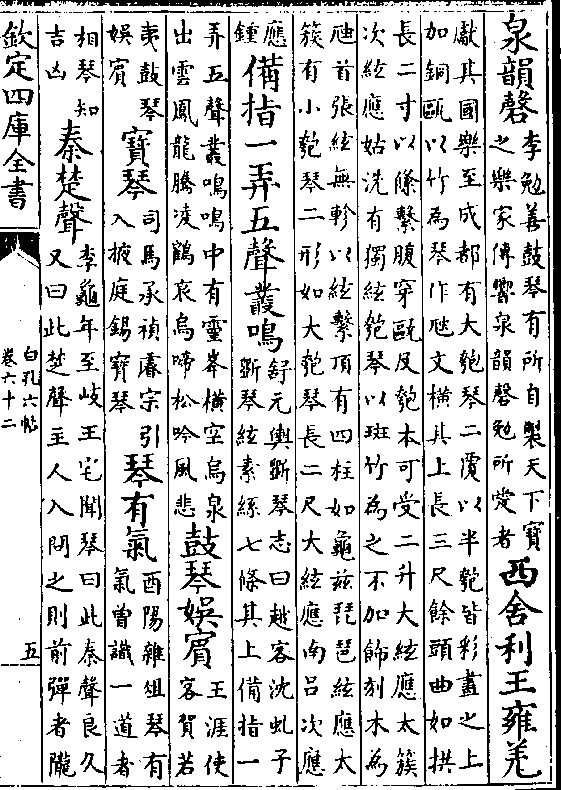 泉韻磬
李勉善鼓琴有所自製天下寶
之樂家傳響泉韻磬勉所愛者
西舍利王雍羌
獻其國樂至成都有大匏琴二覆以半匏皆彩畫之上
加銅甌以竹為琴作虺文橫其上長三尺餘頭曲如拱
長二寸以絛繫腹穿甌及匏本可受二升大絃應太簇
次絃應姑洗有獨絃匏琴以斑竹為之不加飾刻木為
虺首張絃無軫以絃繫頂有四柱如龜茲琵琶絃應太
簇有小匏琴二形如大匏琴長二尺大絃應南呂次應
應
鍾
備指一弄五聲叢鳴
舒元輿斵琴志曰越客沈虬子
斵琴絃素絲七條其上備指一
弄五聲叢鳴鳴中有靈峯橫空烏泉
出雲鳳龍騰凌鶴哀烏啼松吟風悲
鼓琴娛賓
王涯使
客賀若
夷鼓琴
娛賓
寶琴
司馬承禎睿宗引
入掖庭錫寶琴
琴有氣
酉陽雜俎琴有
氣曾識一道者
相琴知
吉凶
秦楚聲
李龜年至岐王宅聞琴曰此秦聲良久
又曰此楚聲主人入問之則前彈者隴
欽定四庫全書
白孔六帖
卷六十二
五